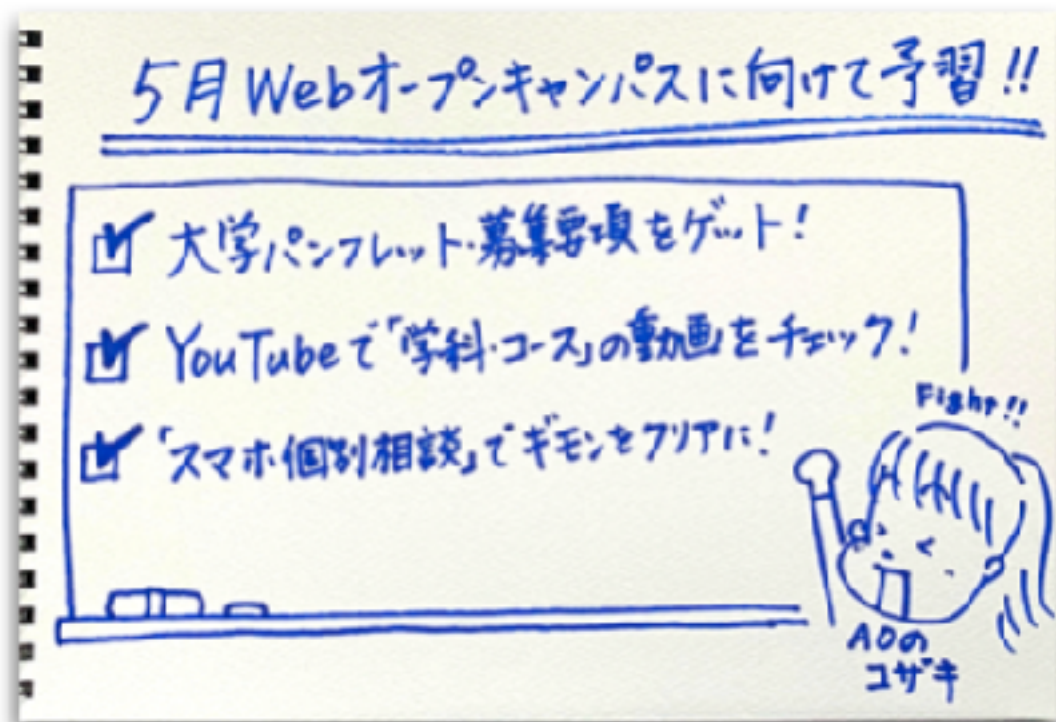 5月Webオープンキャンパスに向けて予習!!
大学パンフレット・募集要項をゲット!
YouTubeで「学科・コース」の動画をチェック!
「スマホ個別相談」でギモンをクリアに!
Fight!!
AOの
コザキ